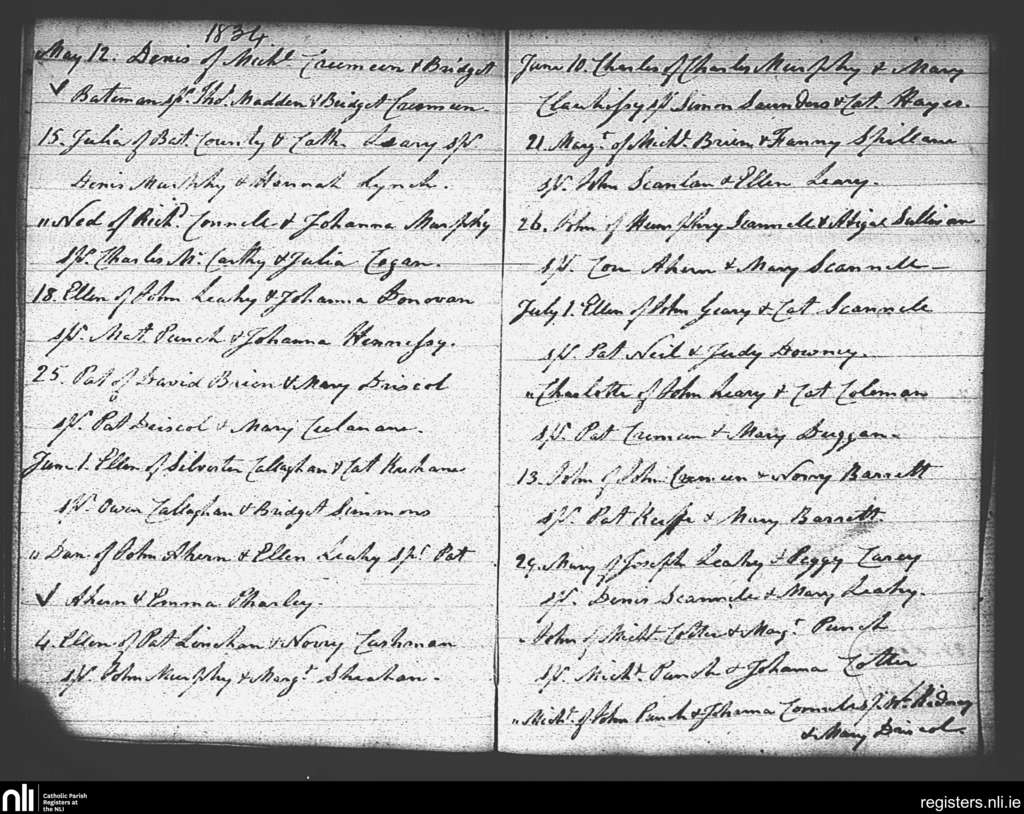 1834
May 12. Denis of Michl. Crimeen & Bridget
Bateman sps. Thos. Madden & Bridget Cremeen.
15. Julia of Bat. County & Cath. Leary sps.
Denis Murphy & Hannah Lynch.
" Ned of Richd. Connell & Johanna Murphy
sps. Charles Mc. Carthy & Julia Cogan.
18. Ellen of John Leahy & Johanna Donovan
sps. Mat. Punch & Johanna Hennessy.
25. Pat of David Brien & Mary Driscol
sps. Pat Driscol & Mary
June 1. Ellen of Silvester Callaghan & Cat
sps. Owen Callaghan & Bridget Simmons
" Dan of John Ahern & Ellen Leahy sps. Pat
Ahern & Emma Sharley.
4. Ellen of Pat Linehan & Norry Cashman
sps. John Murphy & Margt. Sheehan.
June 10. Charles of Charles Murphy & Mary
sps. Simon Saunders & Cat. Hayes.
21. Margt. of Michl. Brien & Fanny Spillane
sps. John Scanlan & Ellen Leary.
26. John of Humphry Scannell & Abigal Sullivan
sps. Con Ahern & Mary Scannell
July 1. Ellen of John Geary & Cat Scannell
sps. Pat Neil & Judy Downey.
" Charlotte of John Leary & Cat Coleman
sps. Pat Cremeen & Mary Duggan
13. John of John Cremeen & Norry Barrett
sps. Pat Keeffe & Mary Barrett.
29. Mary of Joseph Leahy & Peggy Carey
sps. Denis Scannell & Mary Leahy.
" John of Michl. Cotter & Margt. Punch
sps. Michl. Punch & Johanna Cotter
" Michl. of John Punch & Johanna Connell sps. Wm.
& Mary Driscol.
nli
Catholic Parish
Registers at
the NLI
registers.nli.ie